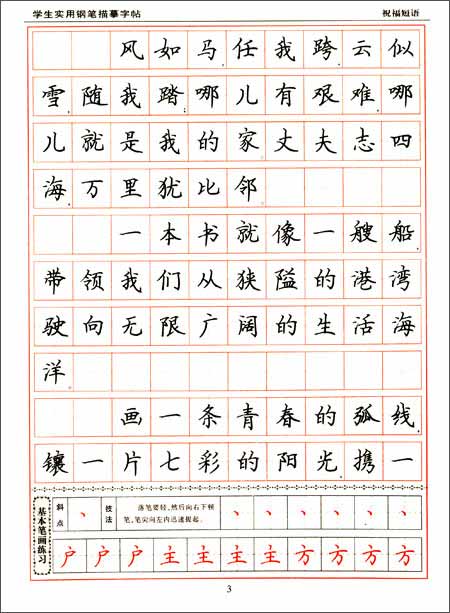 学生实用钢笔描摹字帖 祝福短语
风如马任我跨云似
雪随我踏哪儿有艰难哪
儿就是我的家丈夫志四
海万里犹比邻
一本书就像一艘船
带领我们从狭隘的港湾
驶向无限广阔的生活海
洋
画一条青春的弧线
镶一片七彩的阳光携一
基本笔画练习
斜点 丶 技法 落笔要轻,然后向右下顿
笔,笔尖向左内迅速提起。 丶丶丶丶丶
户户户主主主主方方方方
3